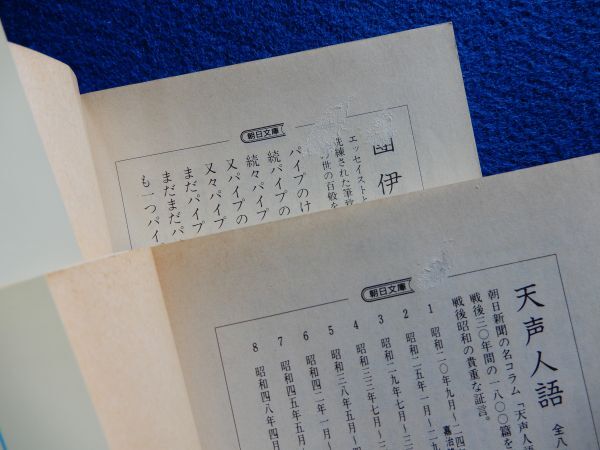 朝日文庫
團伊
エッセイストと
洗練された筆
世の百般を
パイプのけ
続パイプの
続々パイプ
又パイプの
又々パイプ
まだパイプ
まだまだパ
も一つパイ
朝日文庫
天声人語 全八
朝日新聞の名コラム「天声人語
戦後三〇年間の一八〇〇篇を
戦後昭和の貴重な証言。
1 昭和二〇年九月〜二四年
嘉治
2 昭和二五年一月〜二九
3 昭和二九年七月〜
4 昭和三三年七月〜
5 昭和三八年五月〜
6 昭和四二年一月〜
7 昭和四五年五月
8 昭和四八年四月